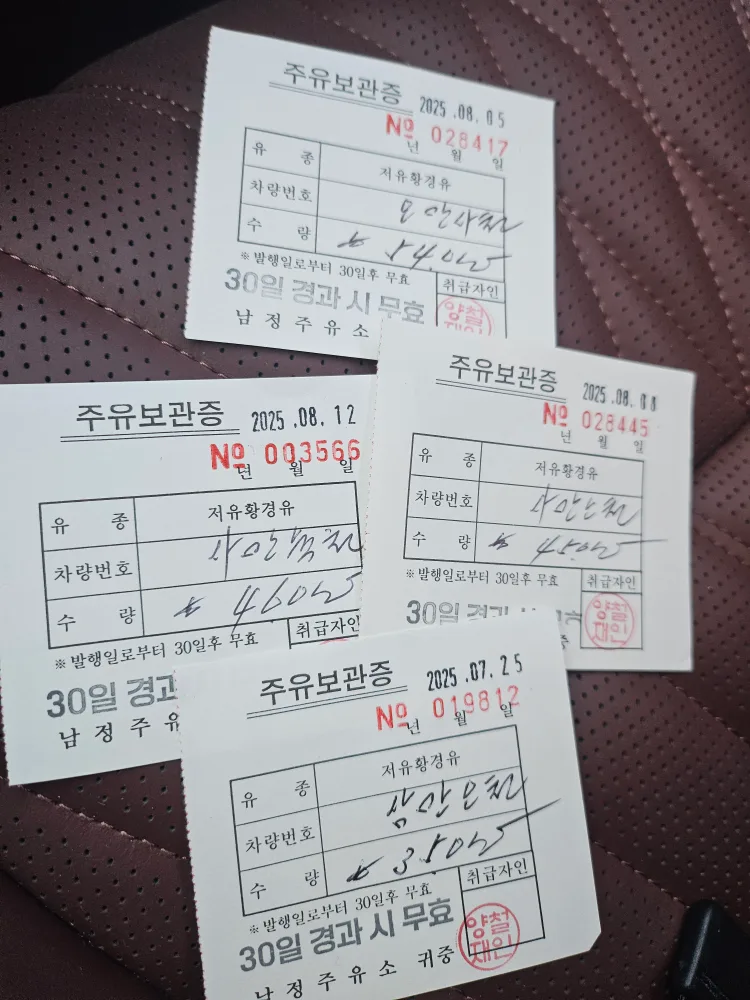 주유보관증
2025.08.05
№ 028417
년 월 일
유 종 저유황경유
차량번호 오만사천
수 량 54.0
※ 발행일로부터 30일후 무효
취급자인
30일 경과 시 무효
양철
재인
남 정 주 유 소
주유보관증
2025.08.
№ 028445
년 월 일
유 종 저유황경유
차량번호 사만
수 량 45.0
※ 발행일로부터 30일후 무효
취급자인
30일
양철
재인
주유보관증
2025.08.12
№ 003566
년 월 일
유 종 저유황경유
차량번호 사만육천
수 량 460
※ 발행일로부터 30일후 무효
취급자인
30일 경과
남 정 주 유
주유보관증
2025.07.25
№ 019812
년 월 일
유 종 저유황경유
차량번호 삼만오천
수 량 350
※ 발행일로부터 30일후 무효
취급자인
30일 경과 시 무효
양철
재인
남 정 주 유 소 귀중